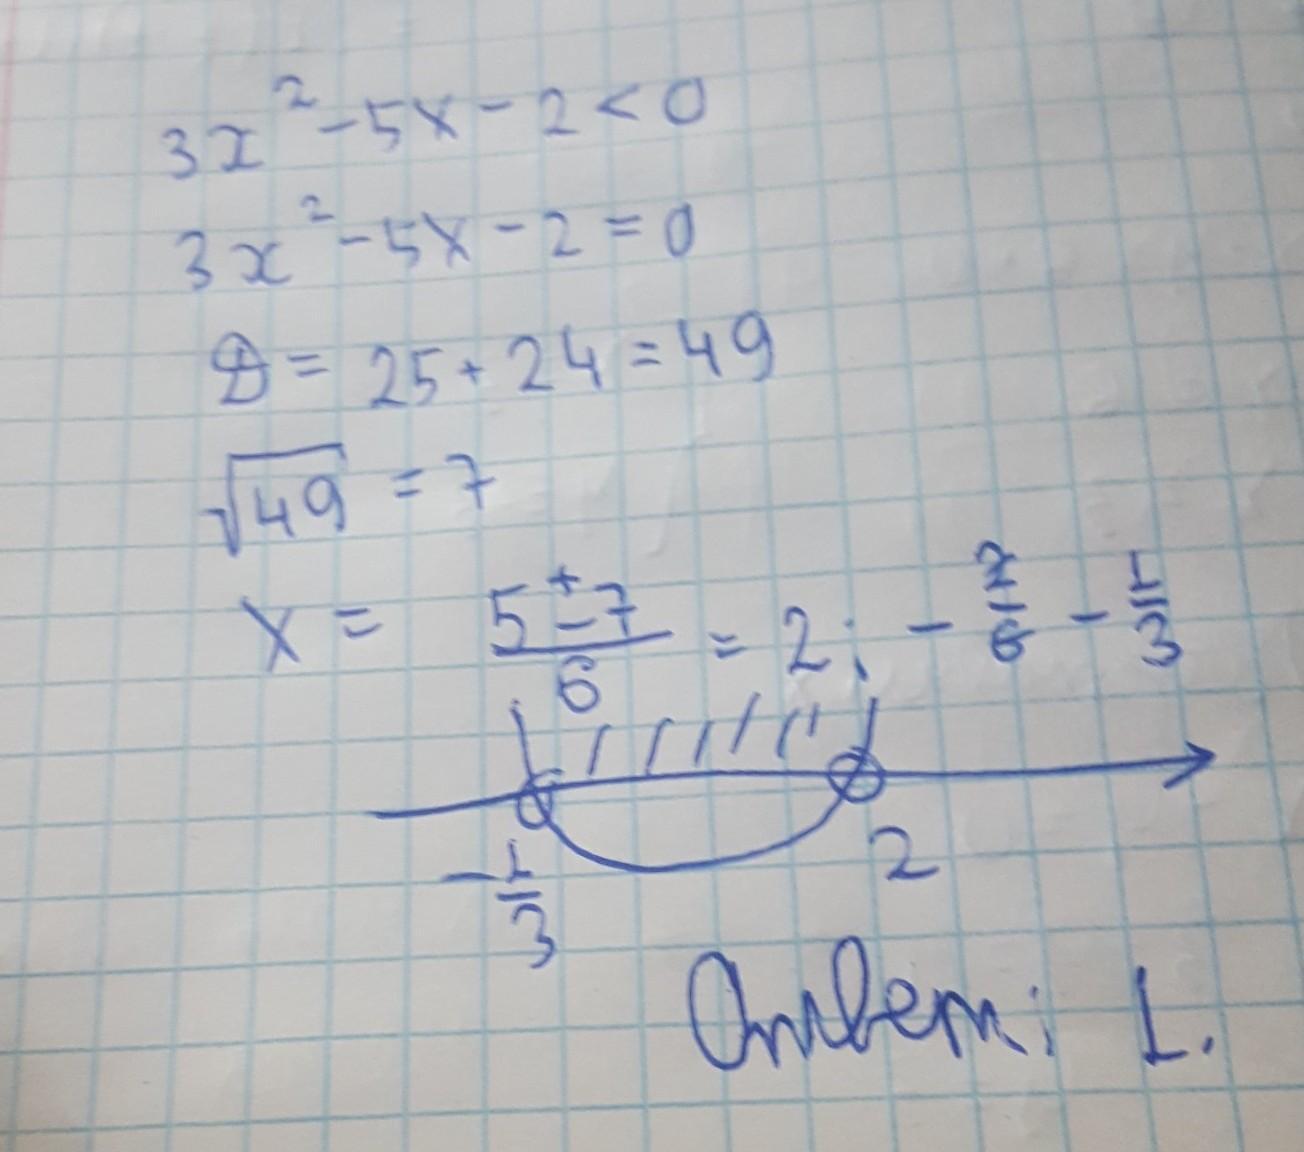 3x² - 5x - 2 < 0
3x² - 5x - 2 = 0
D = 25 + 24 = 49
√49 = 7
x = (5 ± 7)/6 = 2; - 2/6 - 1/3
-1/3 2
Ответ: 1.